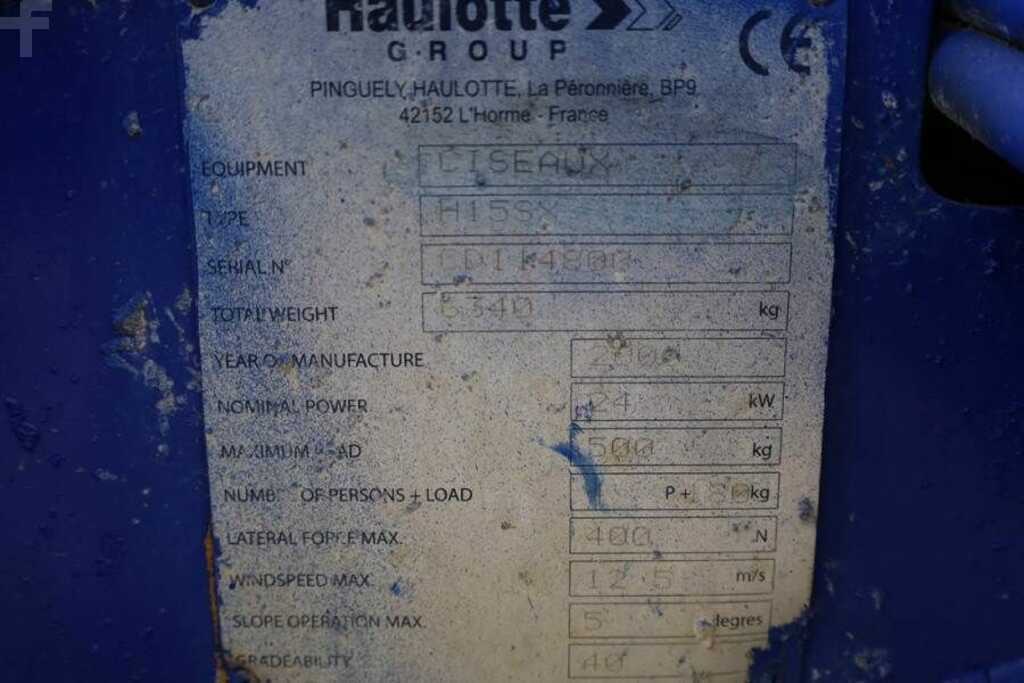 Haulotte
GROUP
CE
PINGUELY HAULOTTE, La Péronnière, BP9
42152 L'Horme - France
EQUIPMENT CISEAUX
TYPE H15SX
SERIAL N° CD114800
TOTAL WEIGHT 6340 kg
YEAR OF MANUFACTURE
NOMINAL POWER 24 kW
MAXIMUM LOAD 500 kg
NUMBER OF PERSONS + LOAD P + 180 kg
LATERAL FORCE MAX. 400 N
WINDSPEED MAX. 12.5 m/s
SLOPE OPERATION MAX. 5 degres
GRADEABILITY 40